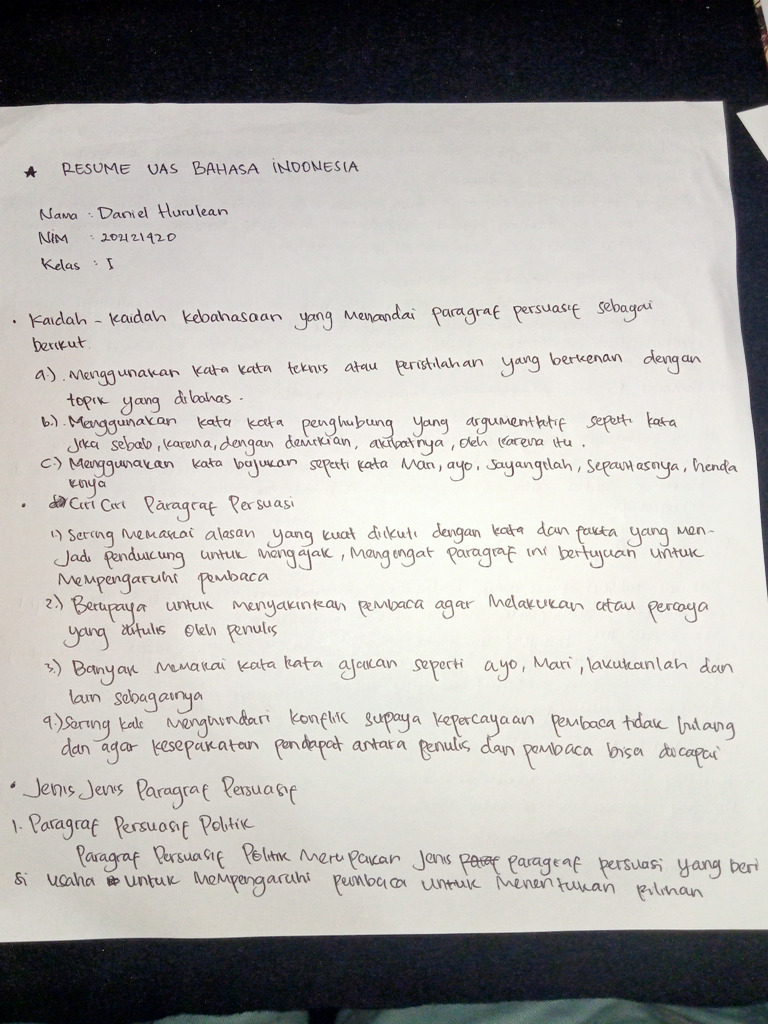 ★ RESUME UAS BAHASA INDONESIA
Nama : Daniel Hurulean
NIM : 202121420
Kelas : I
• Kaidah - Kaidah kebahasaan yang menandai paragraf persuasif sebagai
berikut
a.) . Menggunakan kata kata teknis atau peristilahan yang berkenan dengan
topik yang dibahas .
b.) . Menggunakan kata kata penghubung yang argumentatif seperti kata
jika sebab, karena, dengan demikian, akibatnya, oleh karena itu .
c.) Menggunakan kata bujukan seperti kata Mari, ayo, Sayangilah, Sepantasnya, henda
knya
• Ciri Ciri Paragraf Persuasi
1) Sering Memakai alasan yang kuat diikuti dengan kata dan fakta yang Men-
jadi pendukung untuk mengajak, Mengingat paragraf ini bertujuan untuk
Mempengaruhi pembaca
2.) Berupaya untuk menyakinkan pembaca agar Melakukan atau percaya
yang ditulis oleh penulis
3.) Banyak memakai kata kata ajakan seperti ayo, Mari, lakukanlah dan
lain sebagainya
4.) Sering kali menghindari konflik supaya kepercayaan pembaca tidak hilang
dan agar kesepakatan pendapat antara penulis dan pembaca bisa dicapai
• Jenis Jenis Paragraf Persuasif
1. Paragraf Persuasif Politik
Paragraf Persuasif Politik Merupakan Jenis paragraf persuasi yang beri
si usaha untuk mempengaruhi pembaca untuk Menentukan pilihan